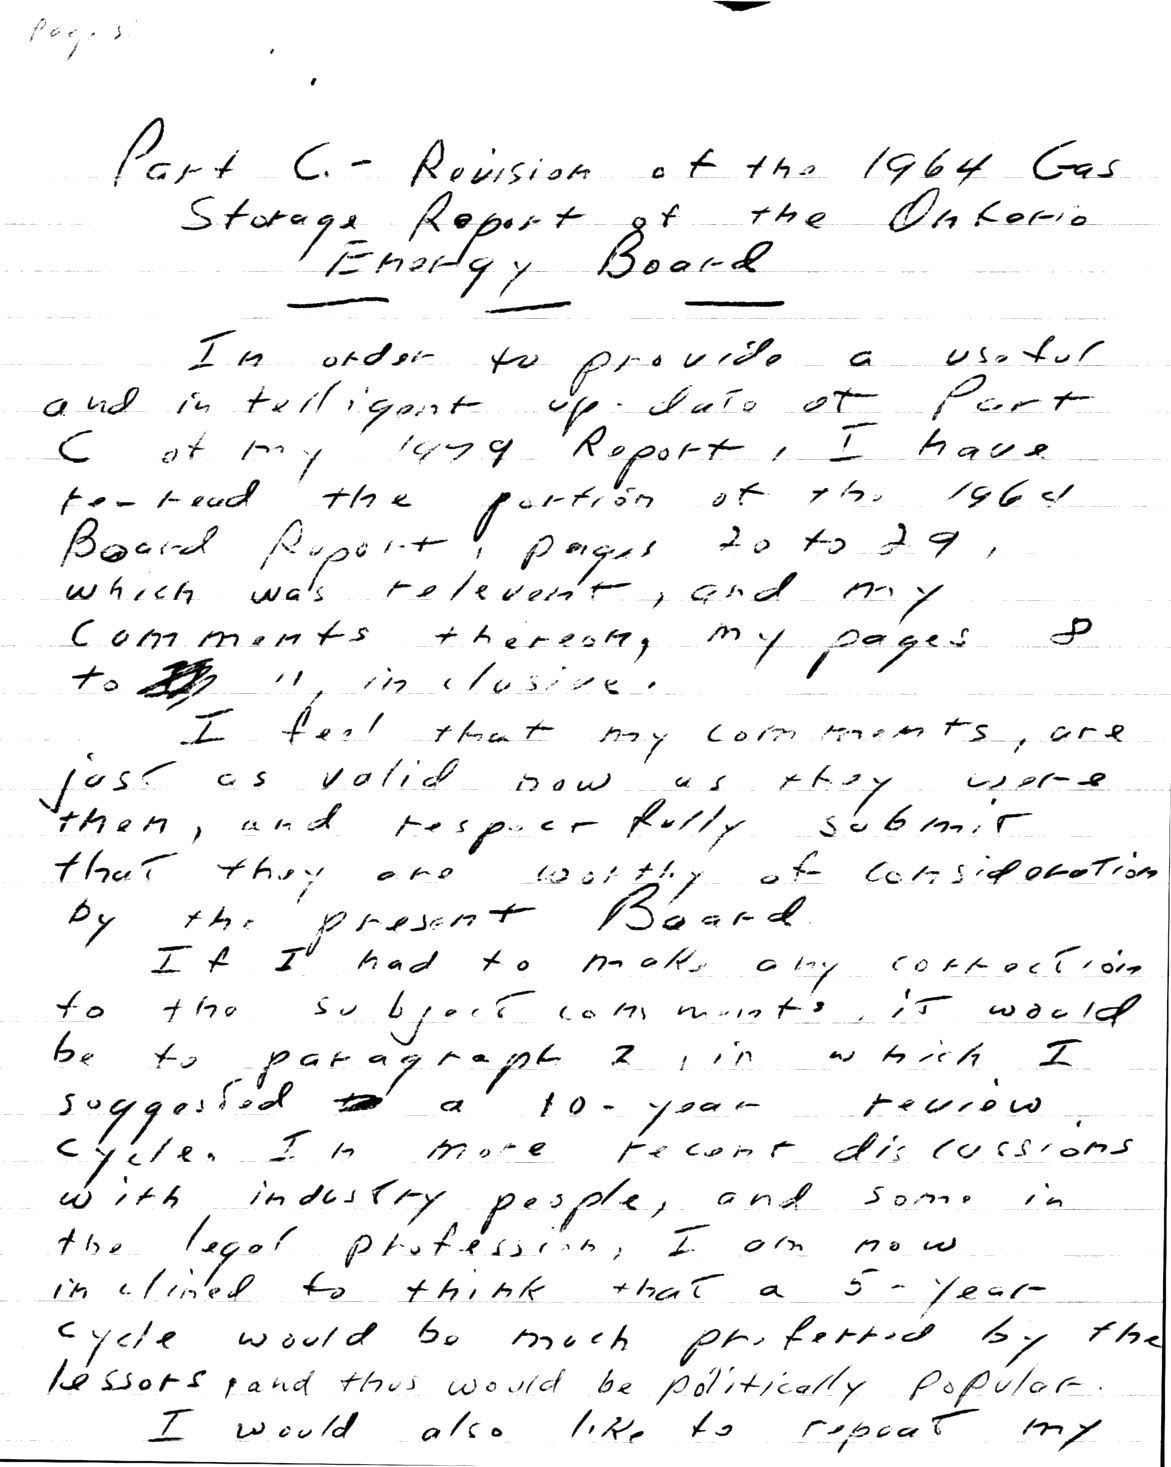 Page 5
Part C. - Revision of the 1964 Gas
Storage Report of the Ontario
Energy Board
In order to provide a useful
and intelligent up-date of Part
C of my 1979 Report, I have
re-read the portion of the 1964
Board Report, pages 20 to 29,
which was relevent, and my
comments thereon, my pages 8
to 11, inclusive.
I feel that my comments, are
just as valid now as they were
then, and respectfully submit
that they are worthy of consideration
by the present Board
If I had to make any correction
to the subject comments, it would
be to paragraph 2, in which I
suggested a 10-year review
cycle. In more recent discussions
with industry people, and some in
the legal profession, I am now
inclined to think that a 5-year
cycle would be much preferred by the
lessors, and thus would be politically popular.
I would also like to repeat my